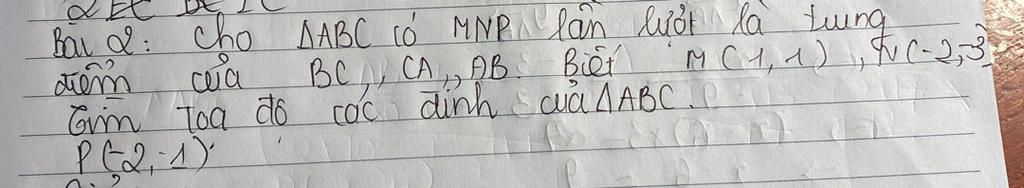 Bài 2: Cho ΔABC có MNP lần lượt là trung
điểm của BC, CA, AB. Biết M(1,1), N(-2,-3
Tìm toạ độ các đỉnh của ΔABC.
P(-2,-1)